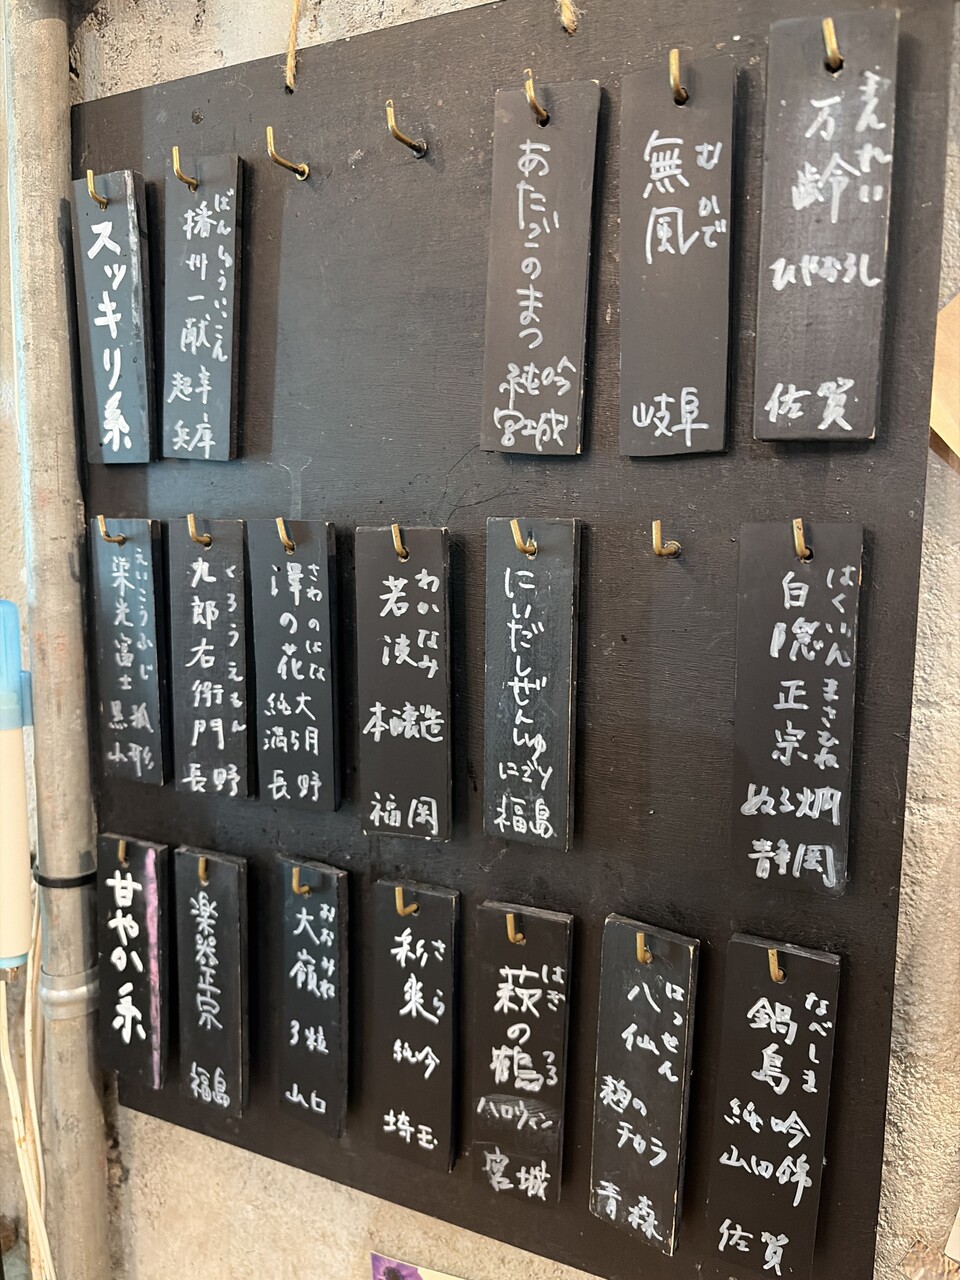 スッキリ系
播州一献
ばんしゅういっこん
超辛
兵庫
あたごのまつ
純吟
宮城
無風
むかで
岐阜
万齢
まんれい
ひやおろし
佐賀
栄光冨士
えいこうふじ
黒狐
山形
九郎右衛門
くろうえもん
長野
澤の花
さわのはな
純大
満ち月
長野
若波
わかなみ
本醸造
福岡
にいだしぜんしゅ
にごり
福島
白隠正宗
はくいんまさむね
ぬる燗
静岡
甘やか系
楽器正宗
福島
大嶺
おおみね
3粒
山口
彩來
さら
純吟
埼玉
萩の鶴
はぎ
つる
ハロウィン
宮城
八仙
はっせん
麹の
チカラ
青森
鍋島
なべしま
純吟
山田錦
佐賀